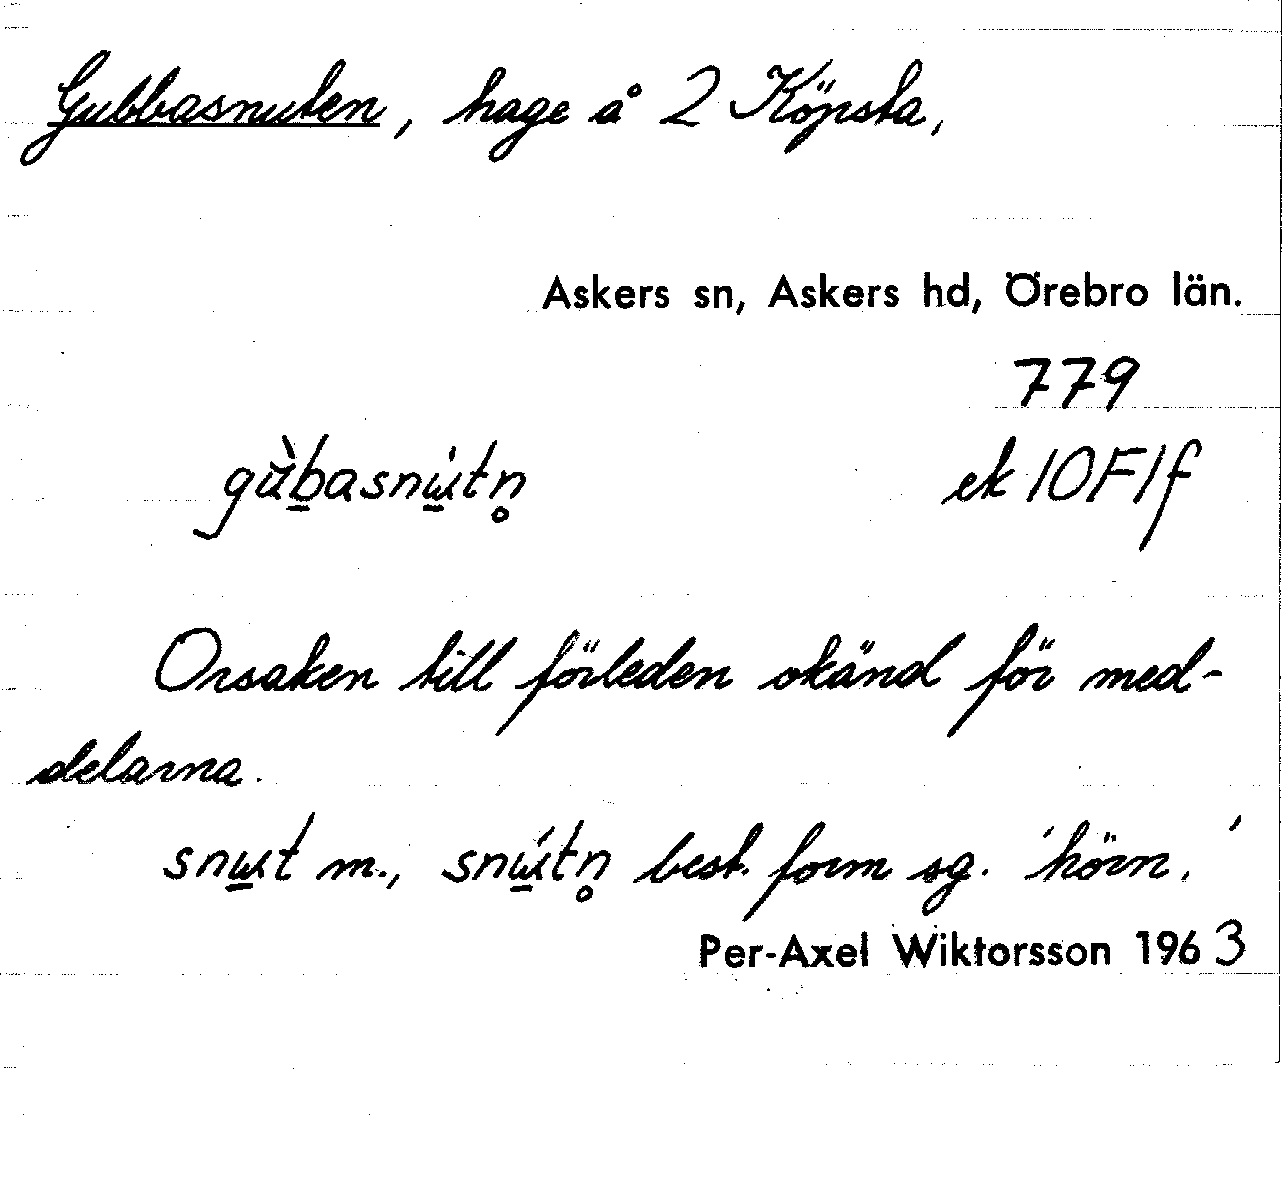 Gubbasnuten, hage å 2 Köpsta,
Askers sn, Askers hd, Örebro län.
779
gu̇̀b̲asnɯ̲́tn̥ ek 10F1f
Orsaken till förleden okänd för med-
delarna.
snɯ̲t m., snɯ̲́tn̥ best. form sg. 'hörn.'
Per-Axel Wiktorsson 1963